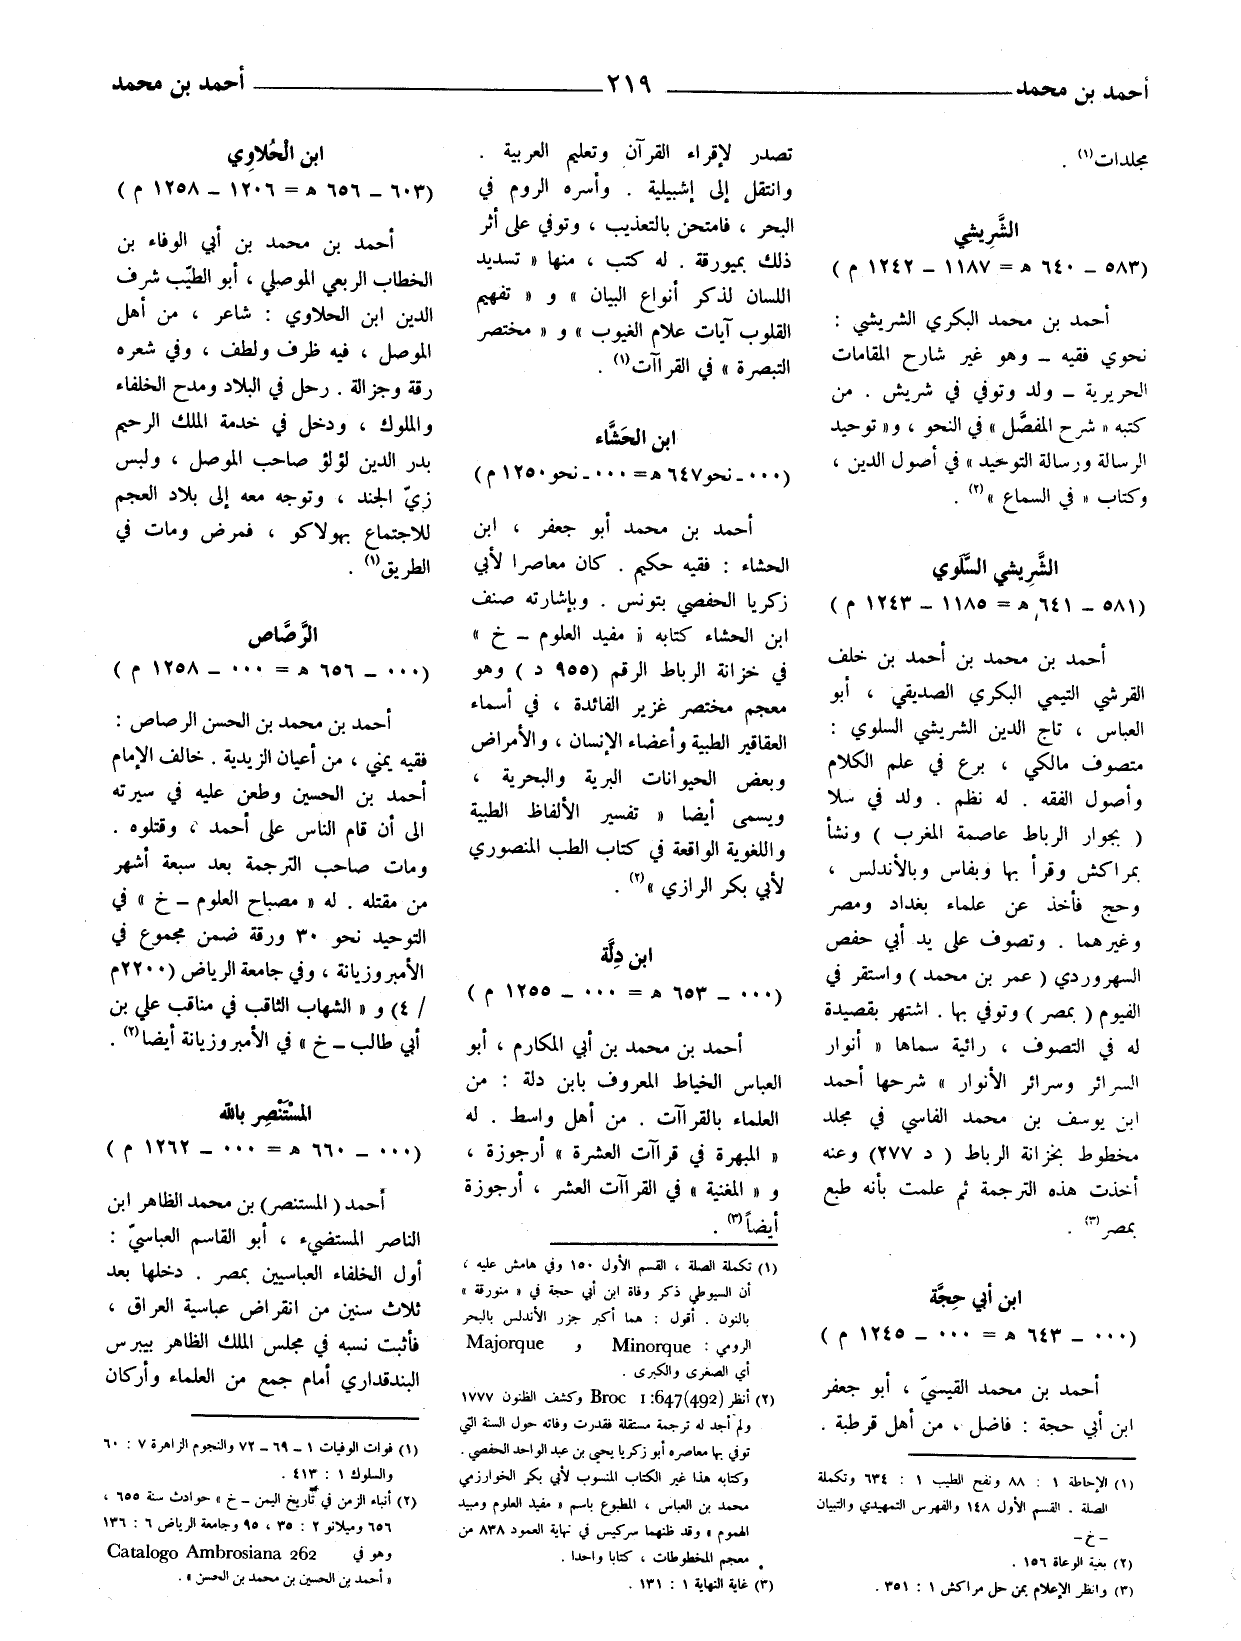 أحمد بن محمد ٢١٩ أحمد بن محمد
مجلدات(١) .
الشَّريشي
(٥٨٣ ــ ٦٤٠ هـ = ١١٨٧ ــ ١٢٤٢ م)
أحمد بن محمد البكري الشريشي :
نحوي فقيه ــ وهو غير شارح المقامات
الحريرية ــ ولد وتوفي في شريش . من
كتبه « شرح المفصَّل » في النحو ، و« توحيد
الرسالة ورسالة التوحيد » في أصول الدين ،
وكتاب « في السماع »(٢) .
الشَّرِيشي السَّلَوي
(٥٨١ ــ ٦٤١ هـ = ١١٨٥ ــ ١٢٤٣ م)
أحمد بن محمد بن أحمد بن خلف
القرشي التيمي البكري الصديقي ، أبو
العباس ، تاج الدين الشريشي السلوي :
متصوف مالكي ، برع في علم الكلام
وأصول الفقه . له نظم . ولد في سلا
( بجوار الرباط عاصمة المغرب ) ونشأ
بمراكش وقرأ بها وبفاس وبالأندلس ،
وحج فأخذ عن علماء بغداد ومصر
وغيرهما . وتصوف على يد أبي حفص
السهروردي ( عمر بن محمد ) واستقر في
الفيوم ( بمصر ) وتوفي بها . اشتهر بقصيدة
له في التصوف ، رائية سماها « أنوار
السرائر وسرائر الأنوار » شرحها أحمد
ابن يوسف بن محمد الفاسي في مجلد
مخطوط بخزانة الرباط ( د ٢٧٧) وعنه
أخذت هذه الترجمة ثم علمت بأنه طبع
بمصر(٣) .
ابن أبي حِجَّة
(٠٠٠ ــ ٦٤٣ هـ = ٠٠٠ ــ ١٢٤٥ م)
أحمد بن محمد القيسيّ ، أبو جعفر
ابن أبي حجة : فاضل ، من أهل قرطبة .
(١) الإحاطة ١ : ٨٨ ونفح الطيب ١ : ٦٣٤ وتكملة
الصلة . القسم الأول ١٤٨ والفهرس التمهيدي والتبيان
ــ خ ــ
(٢) بغية الوعاة ١٥٦ .
(٣) وانظر الإعلام بمن حل مراكش ١ : ٣٥١ .
تصدر لإقراء القرآن وتعليم العربية .
وانتقل إلى إشبيلية . وأسره الروم في
البحر ، فامتحن بالتعذيب ، وتوفي على أثر
ذلك بميورقة . له كتب ، منها « تسديد
اللسان لذكر أنواع البيان » و « تفهيم
القلوب آيات علام الغيوب » و « مختصر
التبصرة » في القراآت(١) .
ابن الحَشَّاء
(٠٠٠ ــ نحو ٦٤٧ هـ = ٠٠٠ ــ نحو ١٢٥٠ م)
أحمد بن محمد أبو جعفر ، ابن
الحشاء : فقيه حكيم . كان معاصرا لأبي
زكريا الحفصي بتونس . وبإشارته صنف
ابن الحشاء كتابه « مفيد العلوم ــ خ »
في خزانة الرباط الرقم (٩٥٥ د ) وهو
معجم مختصر غزير الفائدة ، في أسماء
العقاقير الطبية وأعضاء الإنسان ، والأمراض
وبعض الحيوانات البرية والبحرية ،
ويسمى أيضا « تفسير الألفاظ الطبية
واللغوية الواقعة في كتاب الطب المنصوري
لأبي بكر الرازي »(٢) .
ابن دِلَّة
(٠٠٠ ــ ٦٥٣ هـ = ٠٠٠ ــ ١٢٥٥ م)
أحمد بن محمد بن أبي المكارم ، أبو
العباس الخياط المعروف بابن دلة : من
العلماء بالقراآت . من أهل واسط . له
« المبهرة في قراآت العشرة » أرجوزة ،
و « المغنية » في القراآت العشر ، أرجوزة
أيضاً(٣) .
(١) تكملة الصلة ، القسم الأول ١٥٠ وفي هامش عليه ،
أن السيوطي ذكر وفاة ابن أبي حجة في « منورقة »
بالنون . أقول : هما أكبر جزر الأندلس بالبحر
الرومي : Minorque و Majorque
أي الصغرى والكبرى .
(٢) أنظر Broc 1 :647(492) وكشف الظنون ١٧٧٧
ولم أجد له ترجمة مستقلة فقدرت وفاته حول السنة التي
توفي بها معاصره أبو زكريا يحيى بن عبد الواحد الحفصي .
وكتابه هذا غير الكتاب المنسوب لأبي بكر الخوارزمي
محمد بن العباس ، المطبوع باسم « مفيد العلوم ومبيد
الهموم » وقد ظنهما سركيس في نهاية العمود ٨٣٨ من
معجم المخطوطات ، كتابا واحدا .
(٣) غاية النهاية ١ : ١٣١ .
ابن الْحُلاوِي
(٦٠٣ ــ ٦٥٦ هـ = ١٢٠٦ ــ ١٢٥٨ م)
أحمد بن محمد بن أبي الوفاء بن
الخطاب الربعي الموصلي ، أبو الطيّب شرف
الدين ابن الحلاوي : شاعر ، من أهل
الموصل ، فيه ظرف ولطف ، وفي شعره
رقة وجزالة . رحل في البلاد ومدح الخلفاء
والملوك ، ودخل في خدمة الملك الرحيم
بدر الدين لؤلؤ صاحب الموصل ، ولبس
زيّ الجند ، وتوجه معه إلى بلاد العجم
للاجتماع بهولاكو ، فمرض ومات في
الطريق(١) .
الرَّصَّاص
(٠٠٠ ــ ٦٥٦ هـ = ٠٠٠ ــ ١٢٥٨ م)
أحمد بن محمد بن الحسن الرصاص :
فقيه يمني ، من أعيان الزيدية . خالف الإمام
أحمد بن الحسين وطعن عليه في سيرته
الى أن قام الناس على أحمد ، وقتلوه .
ومات صاحب الترجمة بعد سبعة أشهر
من مقتله . له « مصباح العلوم ــ خ » في
التوحيد نحو ٣٠ ورقة ضمن مجموع في
الأمبروزيانة ، وفي جامعة الرياض (٢٢٠٠م
/ ٤) و « الشهاب الثاقب في مناقب علي بن
أبي طالب ــ خ » في الأمبروزيانة أيضا(٢) .
المسْتَنْصِر بالله
(٠٠٠ ــ ٦٦٠ هـ = ٠٠٠ ــ ١٢٦٢ م)
أحمد ( المستنصر) بن محمد الظاهر ابن
الناصر المستضيء ، أبو القاسم العباسيّ :
أول الخلفاء العباسيين بمصر . دخلها بعد
ثلاث سنين من انقراض عباسية العراق ،
فأثبت نسبه في مجلس الملك الظاهر بيبرس
البندقداري أمام جمع من العلماء وأركان
(١) فوات الوفيات ١ ــ ٦٩ ــ ٧٢ والنجوم الزاهرة ٧ : ٦٠
والسلوك ١ : ٤١٣ .
(٢) أنباء الزمن في تاريخ اليمن ــ خ » حوادث سنة ٦٥٥ ،
٦٥٦ وميلانو ٢ : ٣٥ ، ٩٥ وجامعة الرياض ٦ : ١٣٦
وهو في Catalogo Ambrosiana 262
« أحمد بن الحسين بن محمد بن الحسن » .